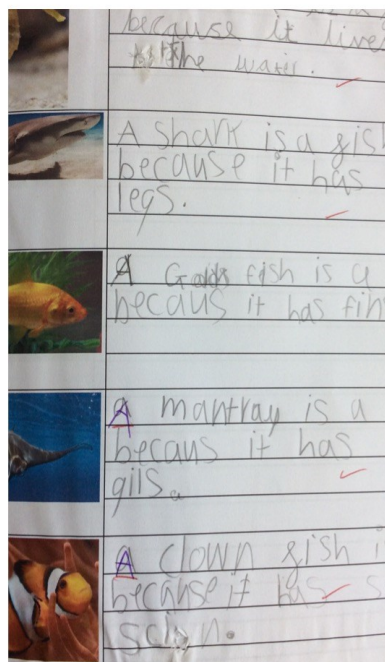 because it live
the water.
A shark is a fish
because it has
legs.
A Gold fish is a
becaus it has fin
A mantray is a
becaus it has
gils.
A clown fish i
because it has s